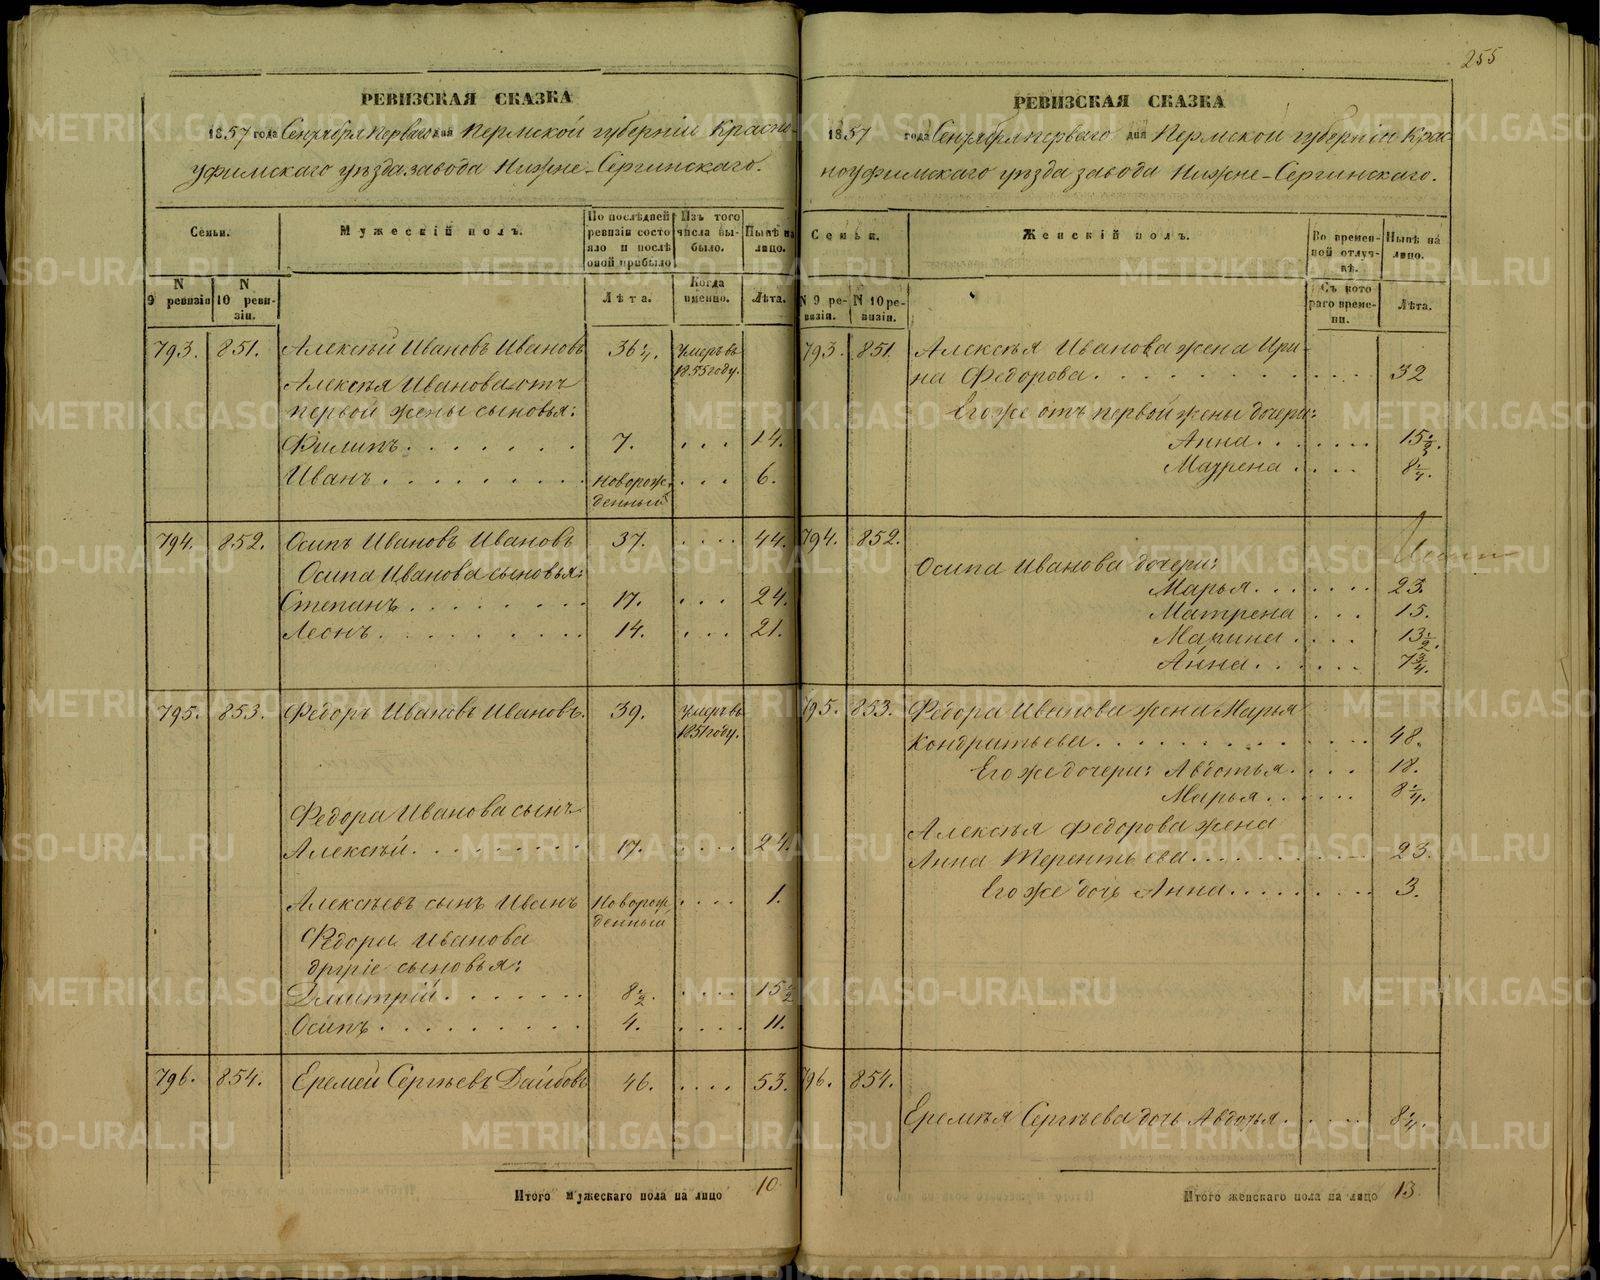 255
РЕВИЗСКАЯ СКАЗКА
1857 года Сентября перваго дня Пермской губернiи Красно-
уфимскаго уѣзда завода Нижне-Сергинскаго.
Семьи.
Мужескiй полъ.
По послѣдней ревизiи состояло и послѣ оной прибыло
Изъ того числа выбыло.
Нынѣ на лицо.
N 9 ревизiи
N 10 ревизiи.
Лѣта.
Когда именно.
Лѣта.
793. 851. Алексѣй Ивановъ Ивановъ 36¼. Умеръ въ 1855 году.
Алексѣя Иванова отъ
первой жены сыновья:
Филипъ 7. 14.
Иванъ новорожденный 6.
794. 852. Осипъ Ивановъ Ивановъ 37. 44.
Осипа Иванова сыновья:
Степанъ 17. 24.
Леонъ 14. 21.
795. 853. Федоръ Ивановъ Ивановъ. 39. Умеръ въ 1851 году.
Федора Иванова сынъ
Алексѣй 17. 24.
Алексѣевъ сынъ Иванъ новорожденный 1.
Федора Иванова
другiе сыновья:
Дмитрiй 8½. 15½
Осипъ 4. 11.
796. 854. Еремей Сергѣевъ Дайбовъ 46. 53.
Итого мужескаго пола на лицо 10
РЕВИЗСКАЯ СКАЗКА
1857 года Сентября перваго дня Пермской губернiи Крас-
ноуфимскаго уѣзда завода Нижне-Сергинскаго.
Семьи.
Женскiй полъ.
Во временной отлучкѣ.
Нынѣ на лицо.
N 9 ревизiи.
N 10 ревизiи.
Съ котораго времени.
Лѣта.
793. 851. Алексѣя Иванова жена Ири-
на Федорова 32
Его же отъ первой жены дочери:
Анна 15½.
Маурена 8¼.
794. 852.
Осипа Иванова дочери:
Марья 23.
Матрена 15.
Марина 13½.
Анна 7¾.
795. 853. Федора Иванова жена Марья
Кондратьева 48.
Его же дочери: Авдотья 18.
Марья 8¼.
Алексѣя Федорова жена
Анна Терентьева 23.
Его же дочь Анна 3.
796. 854.
Еремѣя Сергѣева дочь Авдотья 8¼.
Итого женскаго пола на лицо 13.
METRIKI.GASO-URAL.RU